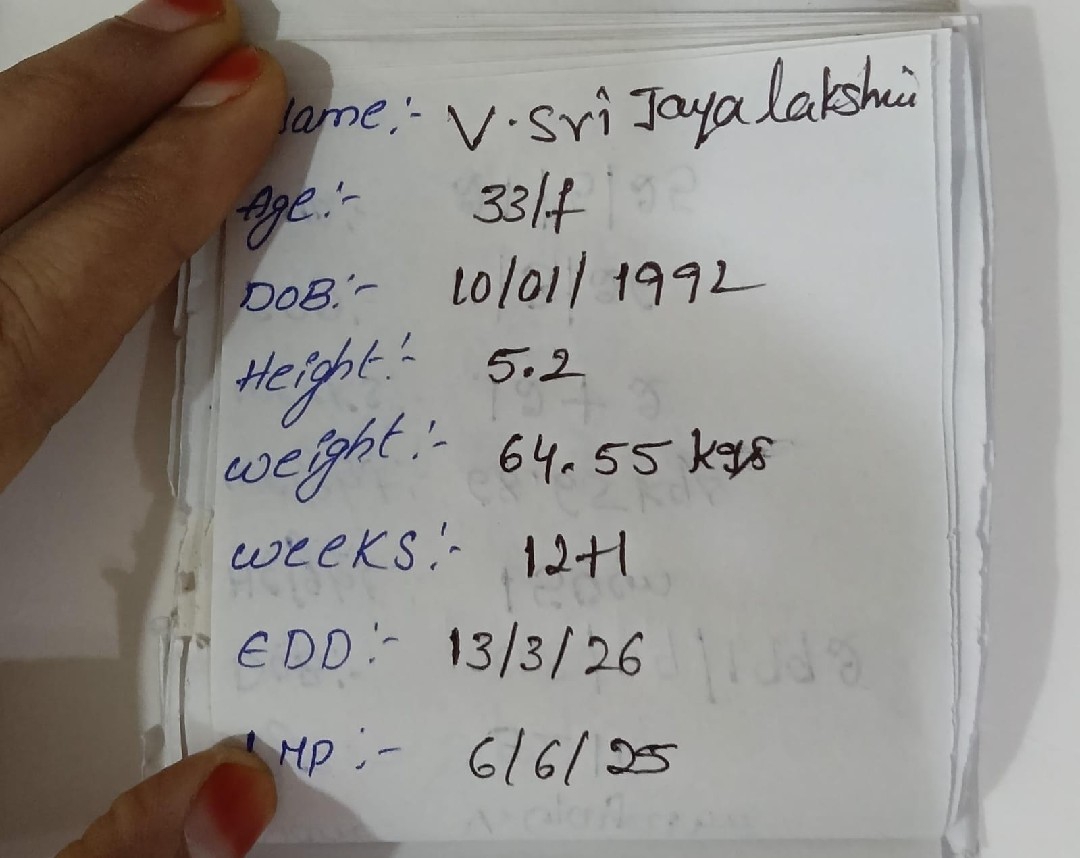 Name :- V. Sri Jayalakshmi
Age :- 33/f
DOB :- 10/01/1992
Height :- 5.2
weight :- 64.55 kgs
weeks :- 12+1
EDD :- 13/3/26
LMP :- 6/6/25